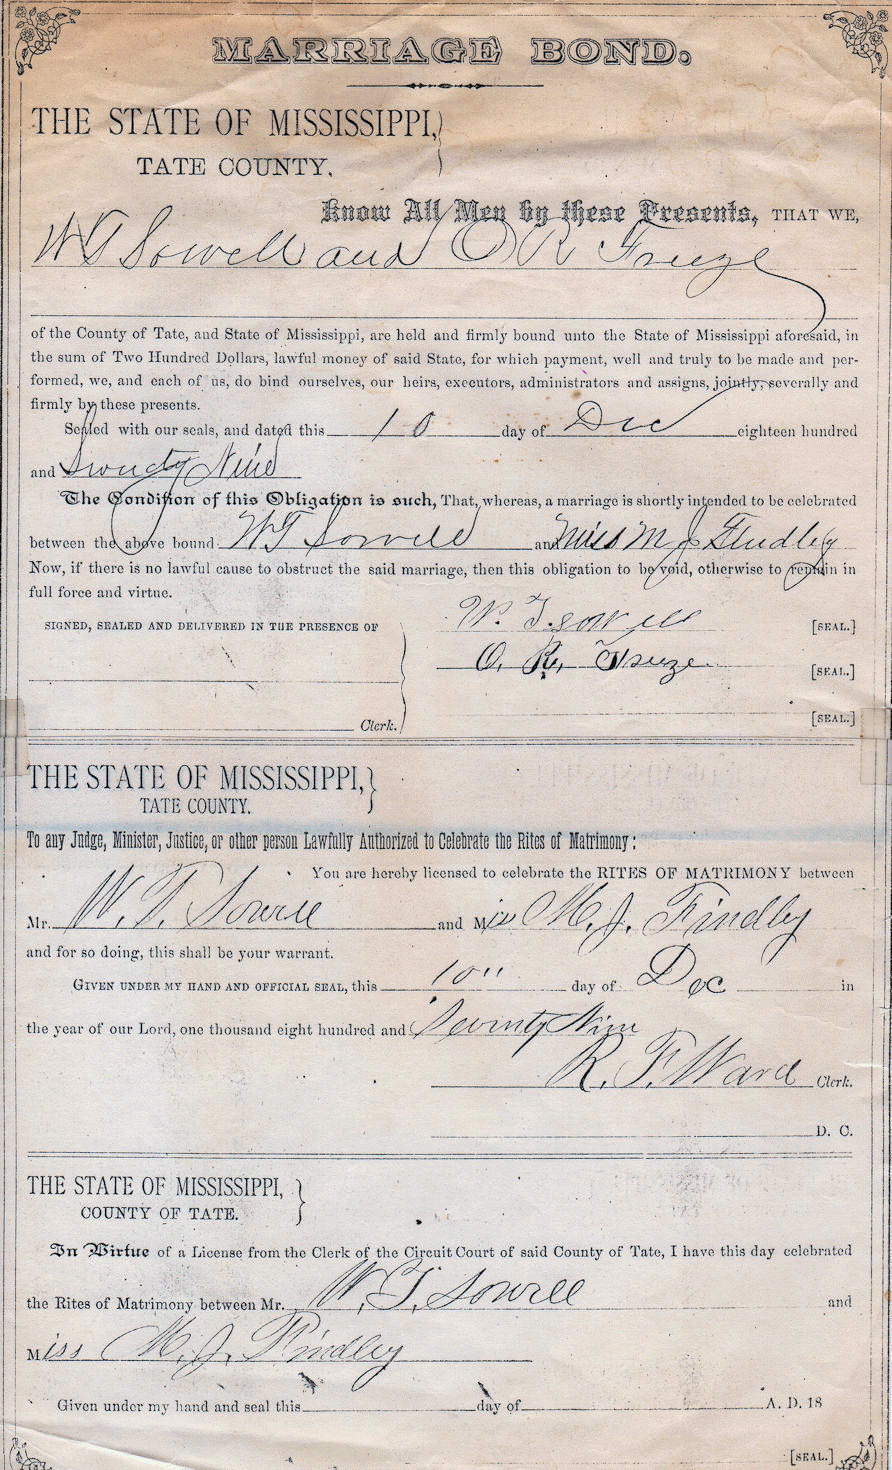 MARRIAGE BOND.
THE STATE OF MISSISSIPPI,
TATE COUNTY.
Know All Men by these Presents, THAT WE,
W T Sowell and O R Freeze
of the County of Tate, and State of Mississippi, are held and firmly bound unto the State of Mississippi aforesaid, in
the sum of Two Hundred Dollars, lawful money of said State, for which payment, well and truly to be made and per-
formed, we, and each of us, do bind ourselves, our heirs, executors, administrators and assigns, jointly, severally and
firmly by these presents.
Sealed with our seals, and dated this 10 day of Dec eighteen hundred
and Seventy Nine
The Condition of this Obligation is such, That, whereas, a marriage is shortly intended to be celebrated
between the above bound W T Sowell and Miss M J Findley
Now, if there is no lawful cause to obstruct the said marriage, then this obligation to be void, otherwise to remain in
full force and virtue.
SIGNED, SEALED AND DELIVERED IN THE PRESENCE OF
W. T. Sowell [SEAL.]
O. R. Freeze [SEAL.]
Clerk. [SEAL.]
THE STATE OF MISSISSIPPI,
TATE COUNTY.
To any Judge, Minister, Justice, or other person Lawfully Authorized to Celebrate the Rites of Matrimony:
You are hereby licensed to celebrate the RITES OF MATRIMONY between
Mr. W. T. Sowell and Miss M. J. Findley
and for so doing, this shall be your warrant.
GIVEN UNDER MY HAND AND OFFICIAL SEAL, this 10" day of Dec in
the year of our Lord, one thousand eight hundred and Seventy Nine
R. F. Ward Clerk.
D. C.
THE STATE OF MISSISSIPPI,
COUNTY OF TATE.
In Virtue of a License from the Clerk of the Circuit Court of said County of Tate, I have this day celebrated
the Rites of Matrimony between Mr. W. T. Sowell and
Miss M. J. Findley
Given under my hand and seal this day of A. D. 18
[SEAL.]